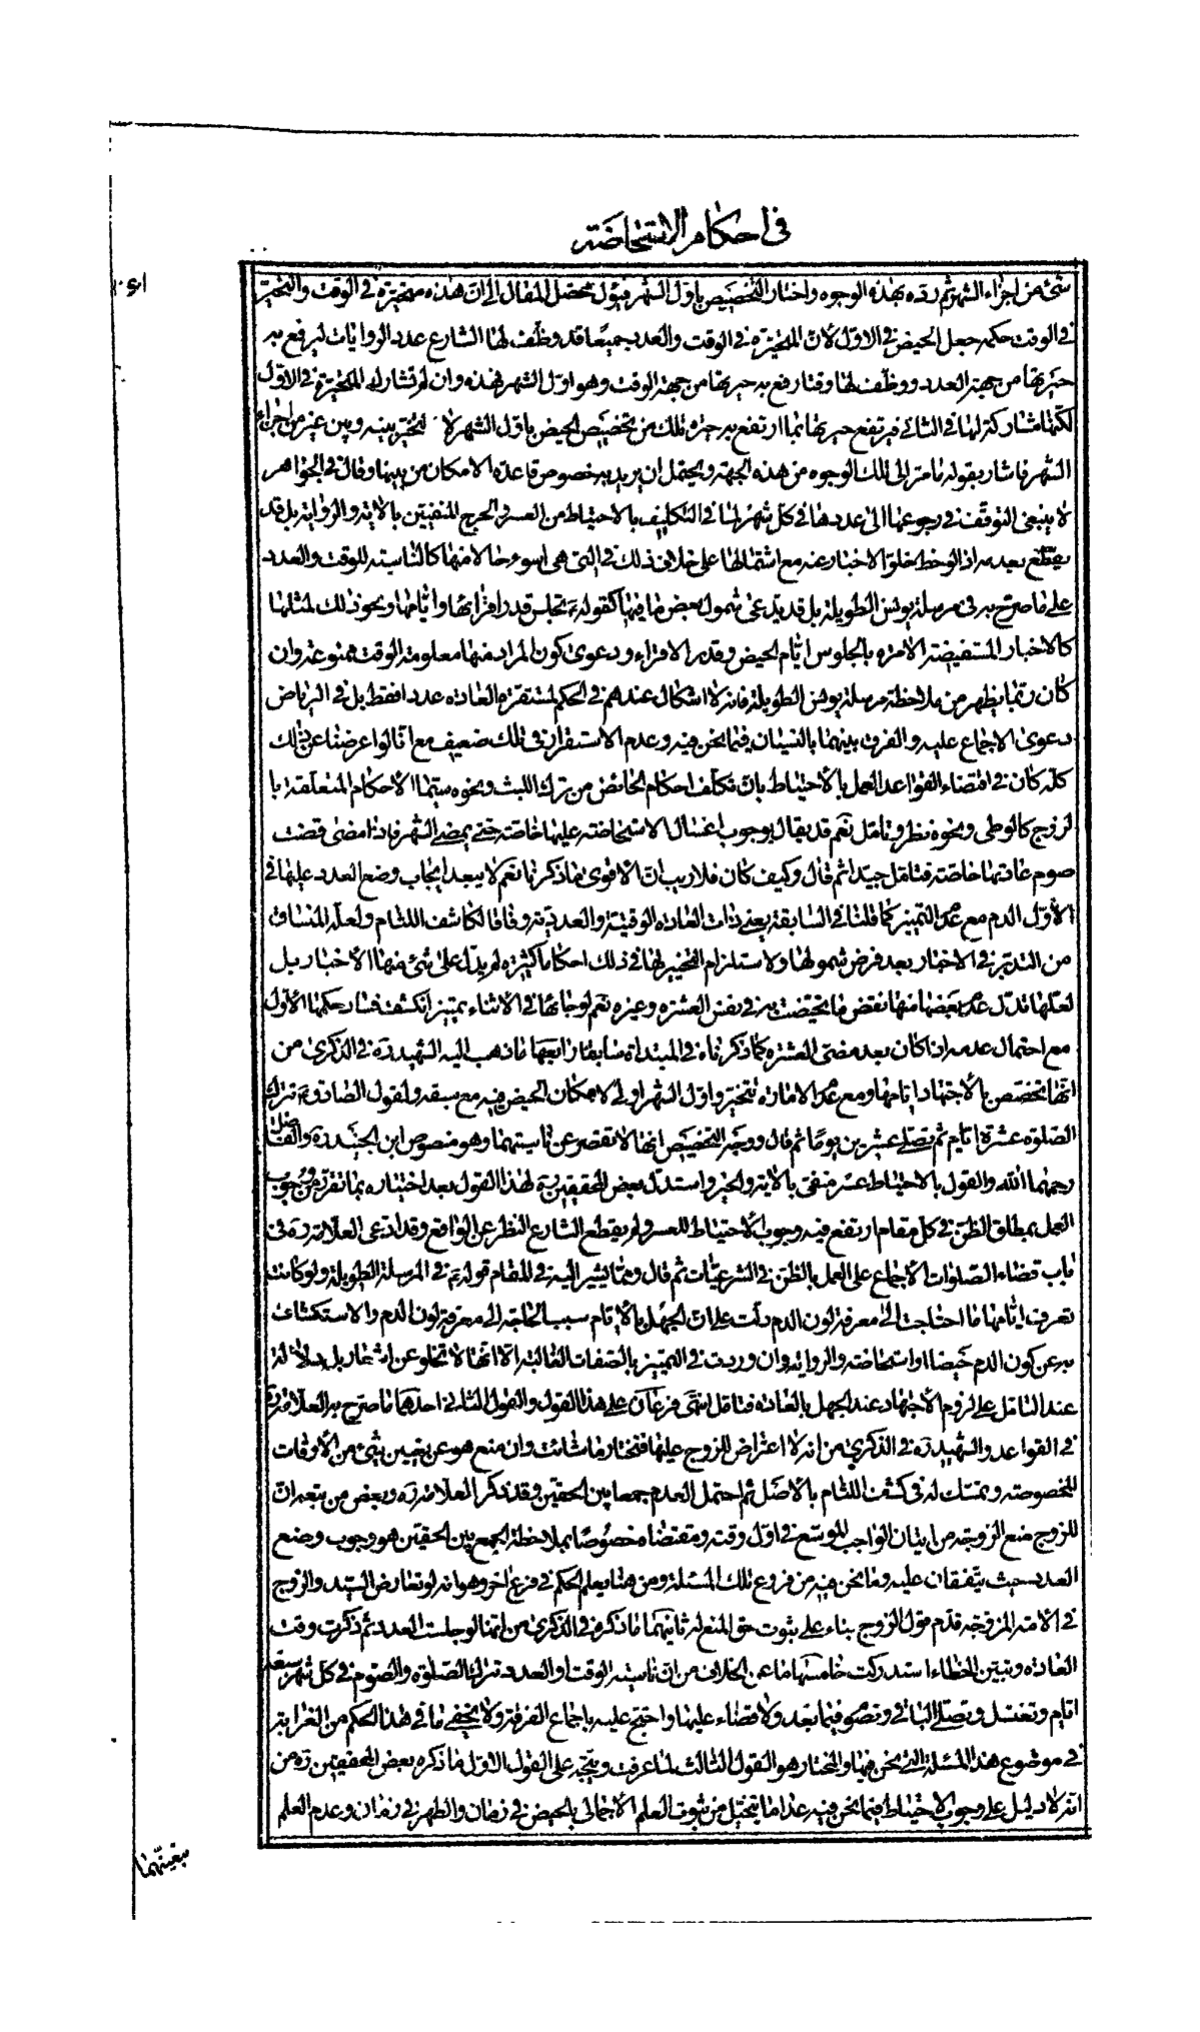 في احكام الاستحاضة
شئ من اجزاء الشهر ثم رده بهذه الوجوه واختار التخصيص باول الشهر فيؤل محصل المقال الى ان هذه متحيرة في الوقت والمتحير
في الوقت حكمه جعل الحيض في الاول لان المتحيرة في الوقت والعدد جميعا قد وظف لها الشارع عدد الروايات ليرفع به
حيرتها من جهة العدد ووظف لها وقتا رفع به حيرتها من جهة الوقت وهو اول الشهر فهذه وان لم تشارك المتحيرة في الاول
لكنها مشاركة لها في الثاني فيرتفع حيرتها بما ارتفع به حيرة تلك من تخصيص الحيض باول الشهر لا لتخير بينه وبين غيره من اجزاء
الشهر فاشار بقوله ما مر الى تلك الوجوه من هذه الجهة ويحتمل ان يريد به خصوص قاعدة الامكان من بينها وقال في الجواهر
لا ينبغي التوقف في رجوعها الى عددها في كل شهر لما في التكليف بالاحتياط من العسر والحرج المنفيين بالاية والرواية بل قد
يقطع بعدم اذا لوحظ خلو الاخبار عنه مع اشتمالها على خلاف ذلك في التي هي اسوء حالا منها كالناسية للوقت والعدد
على ما صرح به في مرسلة يونس الطويلة بل قد يدعى شمول بعض ما فيها كقوله ع تجلس قدر اقرائها وايامها ونحو ذلك لمثلها
كالاخبار المستفيضة الامرة بالجلوس ايام الحيض وقدر الاقراء ودعوى كون المراد منها معلومة الوقت ممنوعة وان
كان ربما يظهر من ملاحظة مرسلة يونس الطويلة فانه لا اشكال عندهم في الحكم لمستقرة العادة عددا فقط بل في الرياض
دعوى الاجماع عليه والفرق بينهما بالنسيان فيما نحن فيه وعدم الاستقرار في تلك ضعيف مع انا لو اعرضنا عن ذلك
كله كان في اقتضاء القواعد العمل بالاحتياط بان تكلف احكام الحائض من ترك اللبث ونحوه سيما الاحكام المتعلقة با
لزوج كالوطى ونحوه نظر وتامل نعم قد يقال بوجوب اغتسال الاستحاضة عليها خاصة حتى يمضى الشهر فاذا مضى قضت
صوم عادتها خاصة فتامل جيدا ثم قال وكيف كان فلا ريب ان الاقوى ما ذكرنا نعم لا يبعد ايجاب وضع العدد عليها في
الاول الدم مع عدم التميز كما قلنا في السابقة يعني ذات العادة الوقتية والعددية وفاقا لكاشف اللثام ولعله المنساق
من التدبر في الاخبار بعد فرض شمولها ولاستلزام التخيير لها في ذلك احكاما كثيرة لم يدل على شئ منها الاخبار بل
لعلها تدل على بعضها منها نقض ما تحيضت به في نفس العشرة وغيره نعم لو جاءها في الاثناء تميز انكشف فساد حكمها الاول
مع احتمال عدمه اذا كان بعد مضى العشرة كما ذكرناه في المبتداة سابقا رابعها ما ذهب اليه الشهيد ره في الذكرى من
انها تخصص بالاجتهاد ايامها ومع عدم الامارة تتخير واول الشهر اولى لامكان الحيض فيه مع سبقه ولقول الصادق ع تترك
الصلوة عشرة ايام ثم تصلى عشرين يوما ثم قال ووجه التخصيص انها لا تقصر عن ناسيتهما وهو منصوص ابن الجنيد ره والفاضل
رحمهما الله والقول بالاحتياط عسر منفى بالاية والخبر واستدل بعض المحققين ره لهذا القول بعد اختياره بما تقرر من وجوب
العمل بمطلق الظن في كل مقام ارتفع فيه وجوب الاحتياط للعسر ولم يقطع الشارع النظر عن الواقع وقد ادعى العلامة ره في
باب قضاء الصلوات الاجماع على العمل بالظن في الشرعيات ثم قال ومما يشير اليه في المقام قوله ع في المرسلة الطويلة ولو كانت
تعرف ايامها ما احتاجت الى معرفة لون الدم دلت على ان الجهل بالايام سبب الحاجة الى معرفة لون الدم والاستكشاف
به عن كون الدم حيضا او استحاضة والرواية وان وردت في التميز بالصفات الغالبة الا انها لا تخلو عن اشعار بل دلالة
عند التامل على لزوم الاجتهاد عند الجهل بالعادة فتامل انتهى فرعان على هذا القول والقول الثاني احدهما ما صرح به العلامة ره
في القواعد والشهيد ره في الذكرى من انه لا اعتراض للزوج عليها فتختار ما شائت وان منع هو عن تعيين شئ من الاوقات
المخصوصة وتمسك له في كشف اللثام بالاصل ثم احتمل العدم جمعا بين الحقين وقد ذكر العلامة ره وبعض من تبعه ان
للزوج منع الزوجة من اتيان الواجب الموسع في اول وقته ومقتضاه خصوصا بملاحظة الجمع بين الحقين هو وجوب وضع
العدد بحيث يتفقان عليه وما نحن فيه من فروع تلك المسئلة ومن هنا يعلم الحكم في فرع اخر وهو انه لو تعارض السيد والزوج
في الامة المزوجة قدم قول الزوج بناء على ثبوت حق المنع له ثانيهما ما ذكره في الذكرى من انها لو جلست العدد ثم ذكرت وقت
العادة وتبين الخطاء استدركت خامسها ما عن الخلاف من ان ناسية الوقت او العدد تترك الصلوة والصوم في كل شهر سبعة
ايام وتغتسل وتصلى الباقي وتصوم فيما بعد ولا قضاء عليها واحتج عليه باجماع الفرقة ولا يخفى ما في هذا الحكم من الغرابة
في موضوع هذه المسئلة التي نحن فيها والمختار هو القول الثالث لما عرفت ويتجه على القول الاول ما ذكره بعض المحققين ره من
انه لا دليل على وجوب الاحتياط فيما نحن فيه عدا ما يتخيل من ثبوت العلم الاجمالي بالحيض في زمان والطهر في زمان وعدم العلم
بعينهما